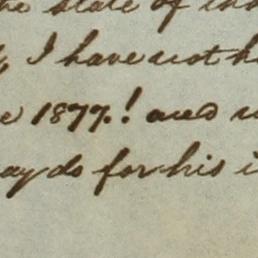 the state of
, I have not h
e 1877.! and
ay do for his i